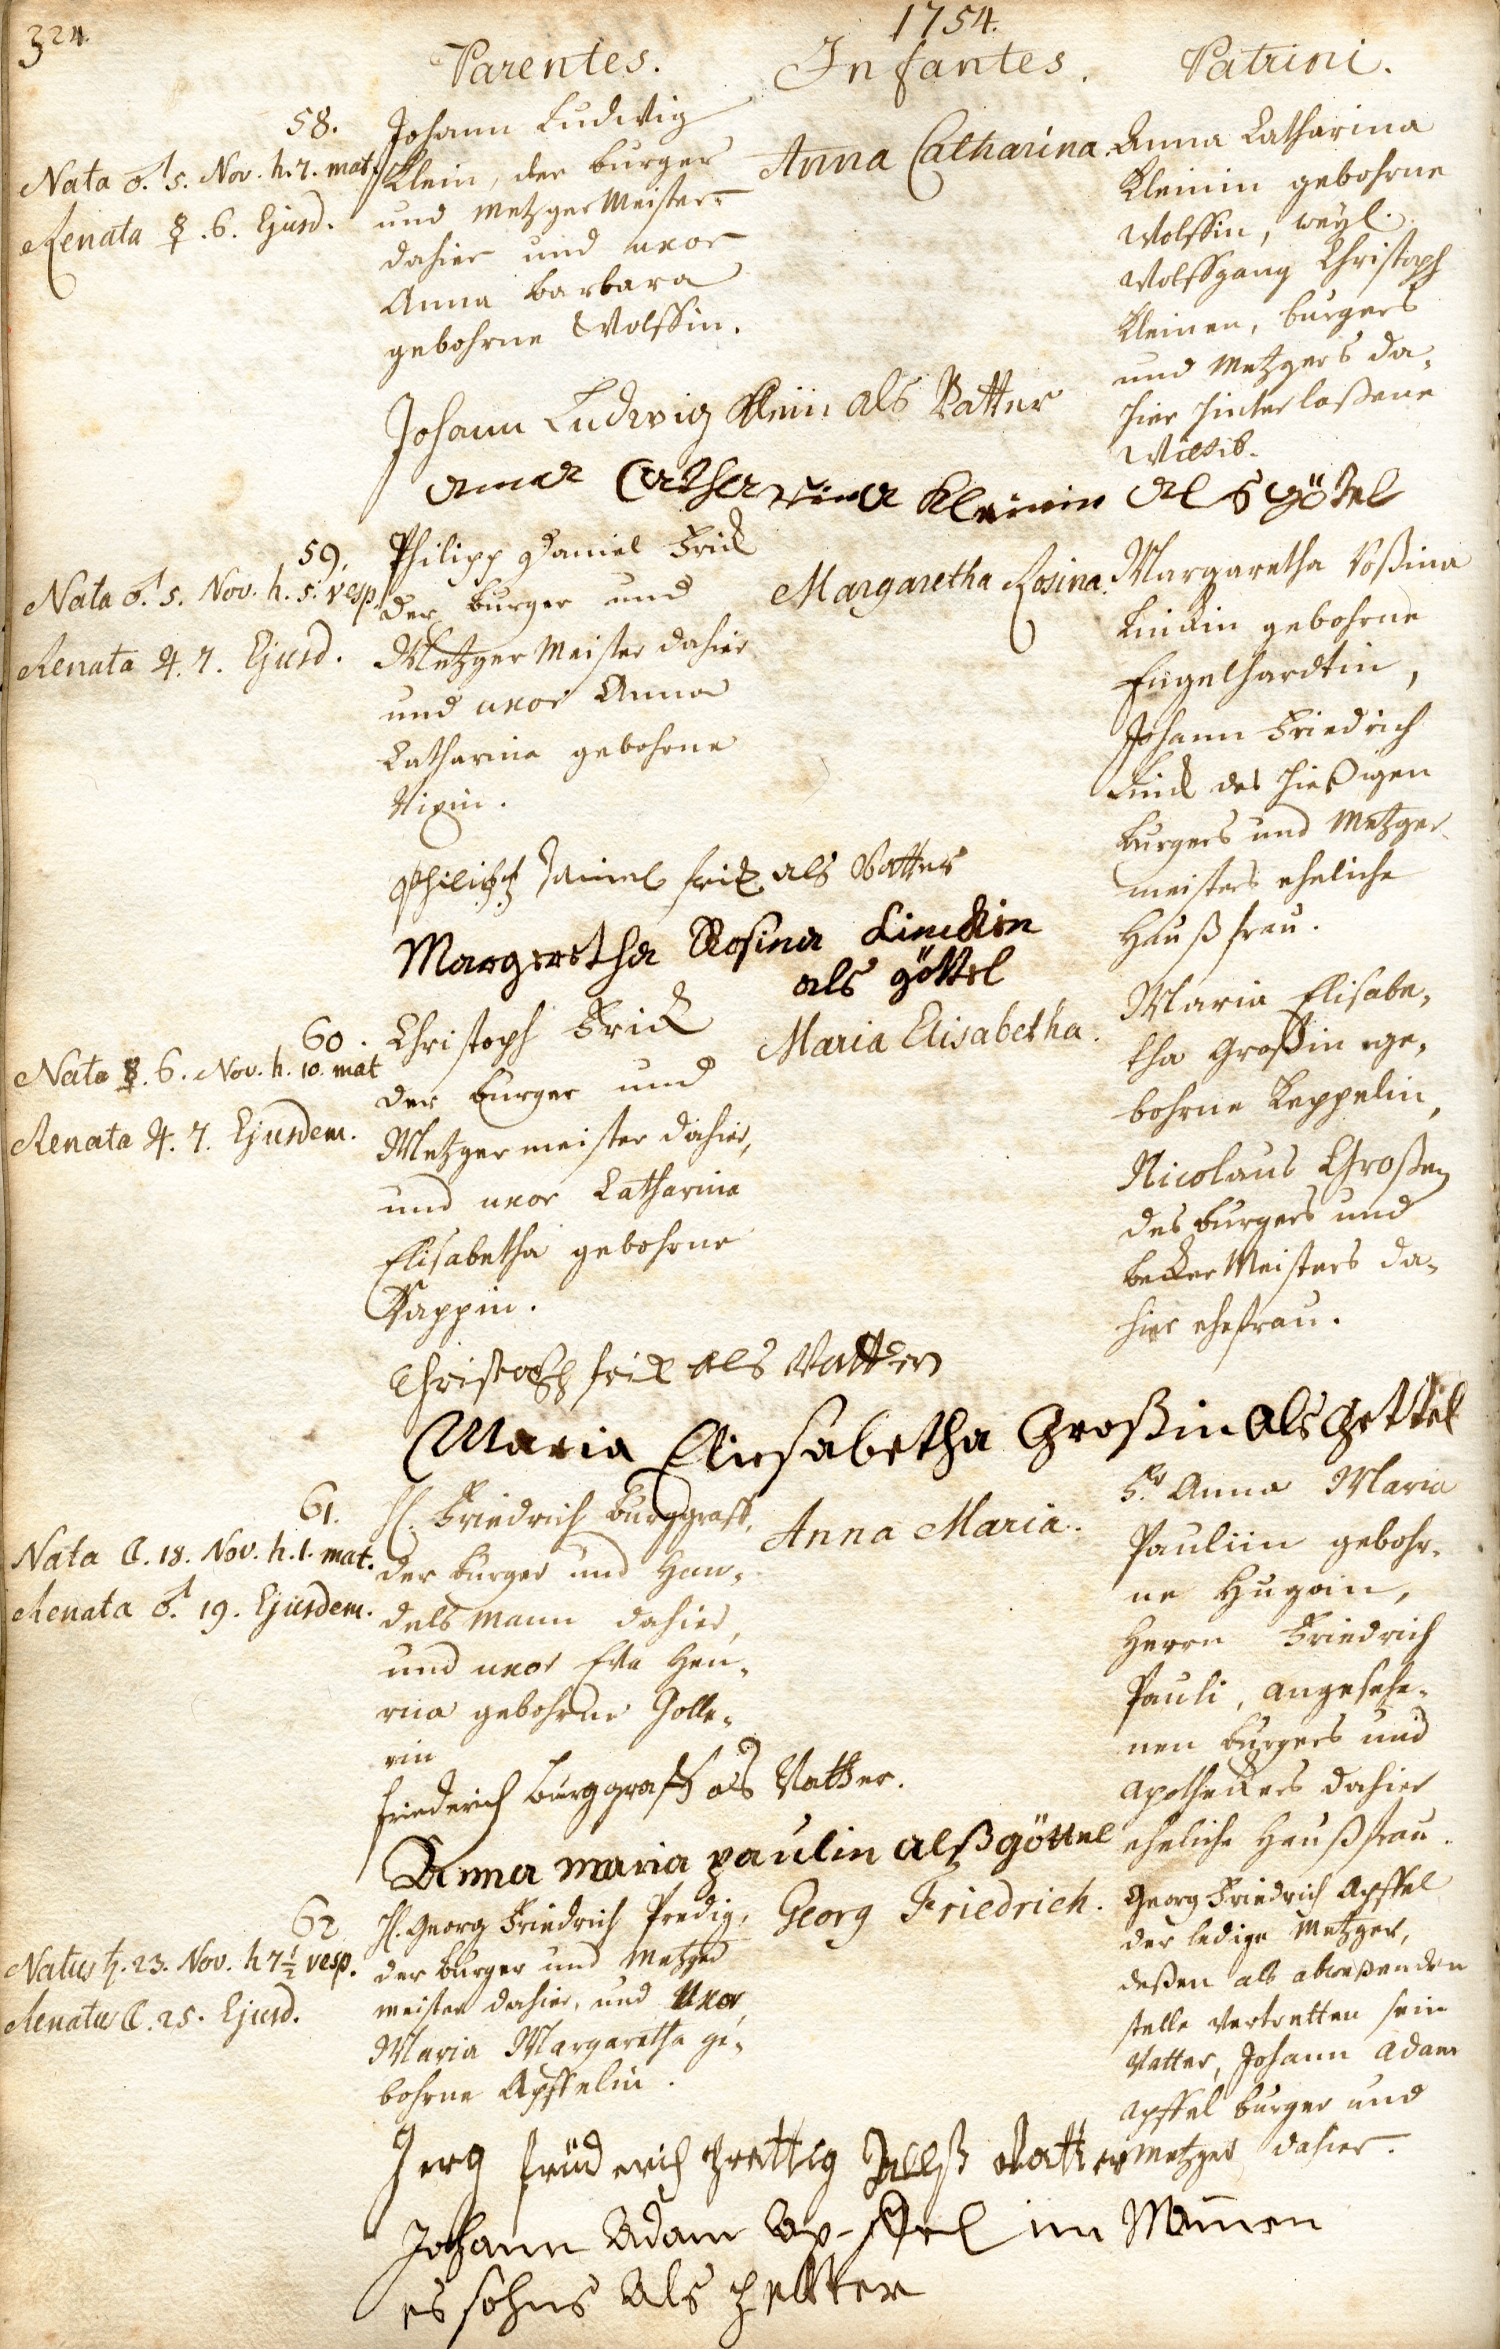 324.
1754.
Parentes.
Infantes.
Patrini.
58.
Nata ♂. 5. Nov. h. 7. mat.
Renata ☿. 6. Ejusd.
Johann Ludwig
Klein, der burger
und Metzger Meister
dahier und uxor
Anna Barbara
gebohrne Wolffin.
Anna Catharina.
Anna Catharina
Kleinin gebohrne
Wolffin, weyl.
Wolffgang Christoph
Kleinen, burgers
und Metzgers da-
hier hinterlaßene
Wittib.
Johann Ludwig Klein als Vatter
Catharina Kleinin als götel
59.
Nata ♂. 5. Nov. h. 5. vesp.
Renata ♃. 7. Ejusd.
Philipp Daniel Frick
der burger und
Metzger Meister dahier
und uxor Anna
Catharina gebohrne
Margaretha Rosina.
Margaretha Roßina
Linckin gebohrne
Engelhardtin,
Johann Friedrich
Linck des hießigen
burgers und Metzger
meisters eheliche
Haußfrau.
Philipp Daniel frick als Vatter
Margaretha Rosina Linckin
als göttel
60.
Nata ☿. 6. Nov. h. 10. mat
Renata ♃. 7. Ejusdem.
Christoph Frick
der burger und
Metzger meister dahier,
und uxor Catharina
Elisabetha gebohrne
Kappin.
Maria Elisabetha.
Maria Elisabe-
tha Großin ge-
bohrne Keppelin,
Nicolaus Großen
des burgers und
becker Meisters da-
hier ehefrau.
Christoph frick als Vatter
Maria Eliesabetha Großin als gettel
61.
Nata ☾. 18. Nov. h. 1. mat.
Renata ♂. 19. Ejusdem.
H. Friedrich Burggraff,
der burger und Han-
dels Mann dahier,
und uxor Eva Hen-
rica gebohrne Golle-
rin
Anna Maria.
Fr. Anna Maria
Pauliin gebohr-
ne Hugoin,
Herrn Friedrich
Pauli, angesehe-
nen burgers und
Apotheckers dahier
eheliche Haußfrau.
friederich Burggraff als Vatter.
Anna maria paulin alß göttel
62
Natus ♄. 23. Nov. h 7½ vesp.
Renatus ☾. 25. Ejusd.
H. Georg Friedrich Predig,
der burger und Metzger
meister dahier, und Uxor
Maria Margaretha ge-
bohrne Apffelin.
Georg Friedrich.
Georg Friedrich Apffel
der ledige Metzger,
deßen als abweßenden
stelle vertretten sein
Vatter, Johann Adam
Apffel burger und
Metzger dahier.
Jerg früderich Vatter
Johann Adam Apffel im Namen
es sohns Als